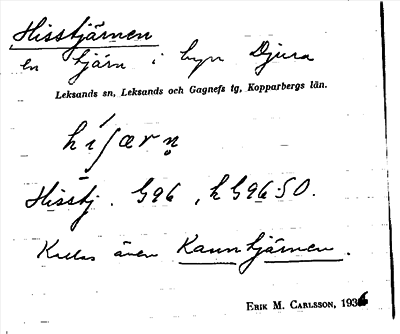 Hisstjärnen
en tjärn i byn Djura
Leksands sn, Leksands och Gagnefs tg, Kopparbergs län.
hı́ʃærn̥
Hisstj. G96, h G96:50.
Kallas även Kanntjärnen.
ERIK M. CARLSSON, 1936